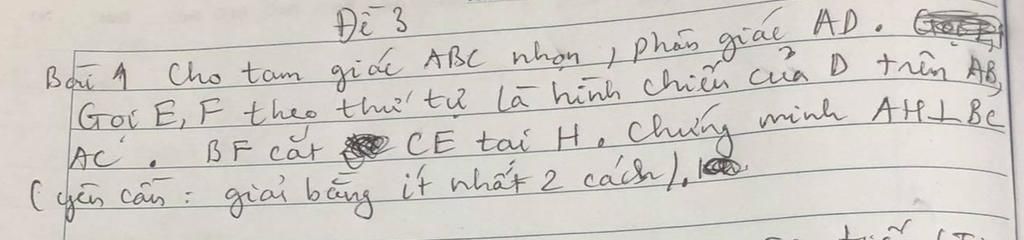 Đề 3
Bài 1 Cho tam giác ABC nhọn, phân giác AD.
Gọi E, F theo thứ tự là hình chiếu của D trên AB,
AC. BF cắt CE tại H. Chứng minh AH⊥BC
(yêu cầu: giải bằng ít nhất 2 cách).